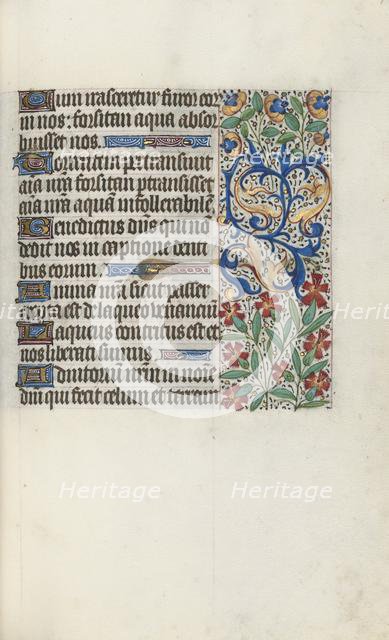 Cum irasceretur furor eor
in nos: forsitan aqua absor
buisset nos.
Torrentem pertransivit
aia nra forsitan ptransisset
aia nra aquam intollerabilem
Benedictus dns qui no
dedit nos in captione denti
bus eorum.
Anima nra sicut passer
est de laqueo venanciu
Laqueus contritus est et
nos liberati sumus
Adiutorium nrm in noie
dni qui fecit celum et terram
Heritage
Heritage
Heritage
Heritage
Heritage
Heritage